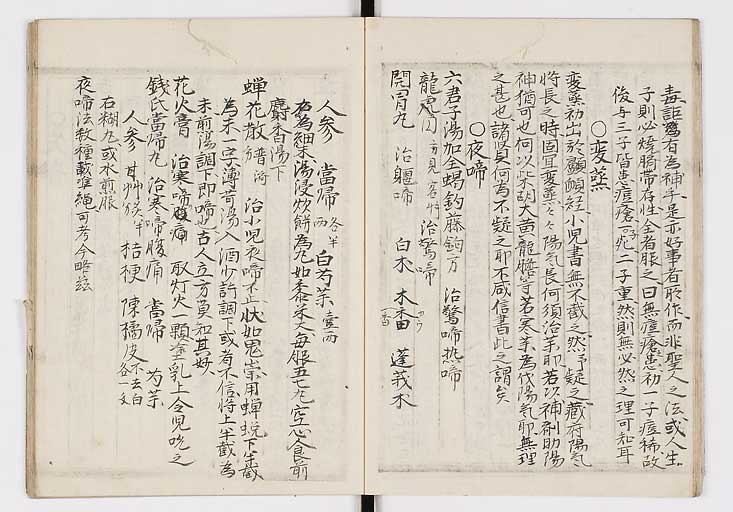 毒詎爲有爲補乎是亦好事者所作而非聖人之法或人生
子則必燒臍帶存性全者服之曰無痘瘡患初一子痘稀故
後与三子皆患痘瘡一死二子重然則無必然之理可知耳
○変蒸
変蒸初出於顱顖経小児書無不載之然予疑之蔵府陽気
将長之時固宜変蒸々々陽気長何須治乎耶若以補剤助陽
神猶可也何以柴胡大黄龍膽等苦寒薬為伐陽気耶無理
之甚也諸賢何為不疑之耶不咸信書此之謂矣
○夜啼
六君子湯加全蝎釣藤鈎方 治驚啼热啼
龍 方見客忤 治驚啼
胃丸 治軀啼 白木 木香 蓬莪木
人参 當帰 各半両 白芍薬 壹両
為細末湯浸炊餅為丸如黍米大毎服五七丸空心食前
麝香湯下
蝉花散 治小児夜啼不止状如鬼祟用蝉蛻下半截
為末一字薄荷湯入酒少許調下或者不信将上半截為
末前湯調下即啼也古人立方莫知其妙
花火膏 治寒啼腹痛 取灯火一顆塗乳上令児吮之
錢氏當帰丸 治寒啼腹痛 當帰 芍薬
人参 甘艸炙半 桔梗 陳橘皮不去白各一文
右糊丸或水煎服
夜啼法数種載準縄可考今略茲